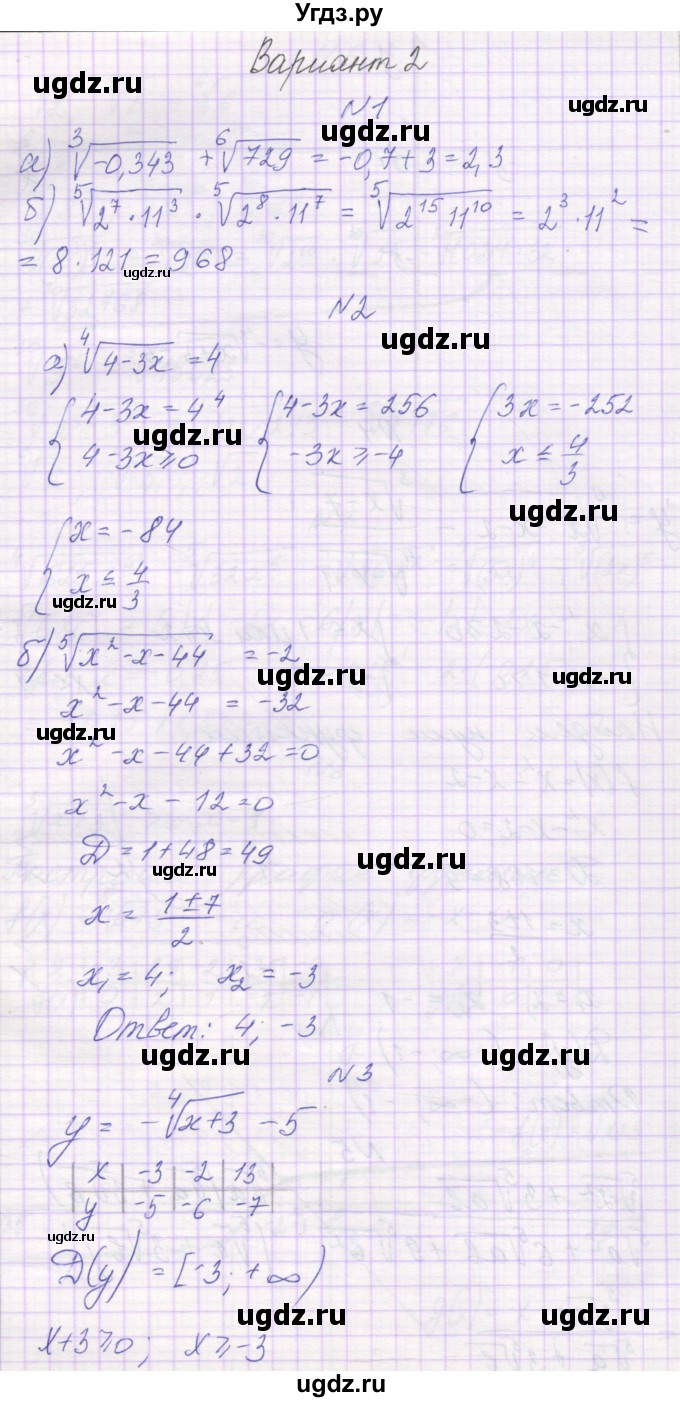 Угдз.ру
Вариант 2
ugdz.ru
ugdz.ru
N1
ugdz.ru
а) ∛(-0,343) + ⁶√729 = -0,7+3=2,3
б) ⁵√(2⁷·11³) · ⁵√(2⁸·11⁷) = ⁵√(2¹⁵ 11¹⁰) = 2³·11² =
= 8·121 = 968
ugdz.ru
N2
ugdz.ru
а) ⁴√(4-3x) = 4
{ 4-3x = 4⁴ { 4-3x = 256 { 3x = -252
ugdz.ru
4-3x ⩾ 0 -3x ⩾ -4 x ≤ 4/3
ugdz.ru
{ x = -84
x ≤ 4/3
ugdz.ru
б) ⁵√(x²-x-44) = -2
ugdz.ru
ugdz.ru
x²-x-44 = -32
ugdz.ru
x²-x-44+32=0
x²-x-12=0
D = 1+48=49
ugdz.ru
ugdz.ru
x = (1±7)/2
x₁ = 4; x₂ = -3
Ответ: 4; -3
ugdz.ru
ugdz.ru
N3
y = -⁴√(x+3) - 5
x | -3 | -2 | 13
y | -5 | -6 | -7
ugdz.ru
D(y) = [-3; +∞)
ugdz.ru
ugdz.ru
x+3⩾0; x⩾-3
ugdz.ru